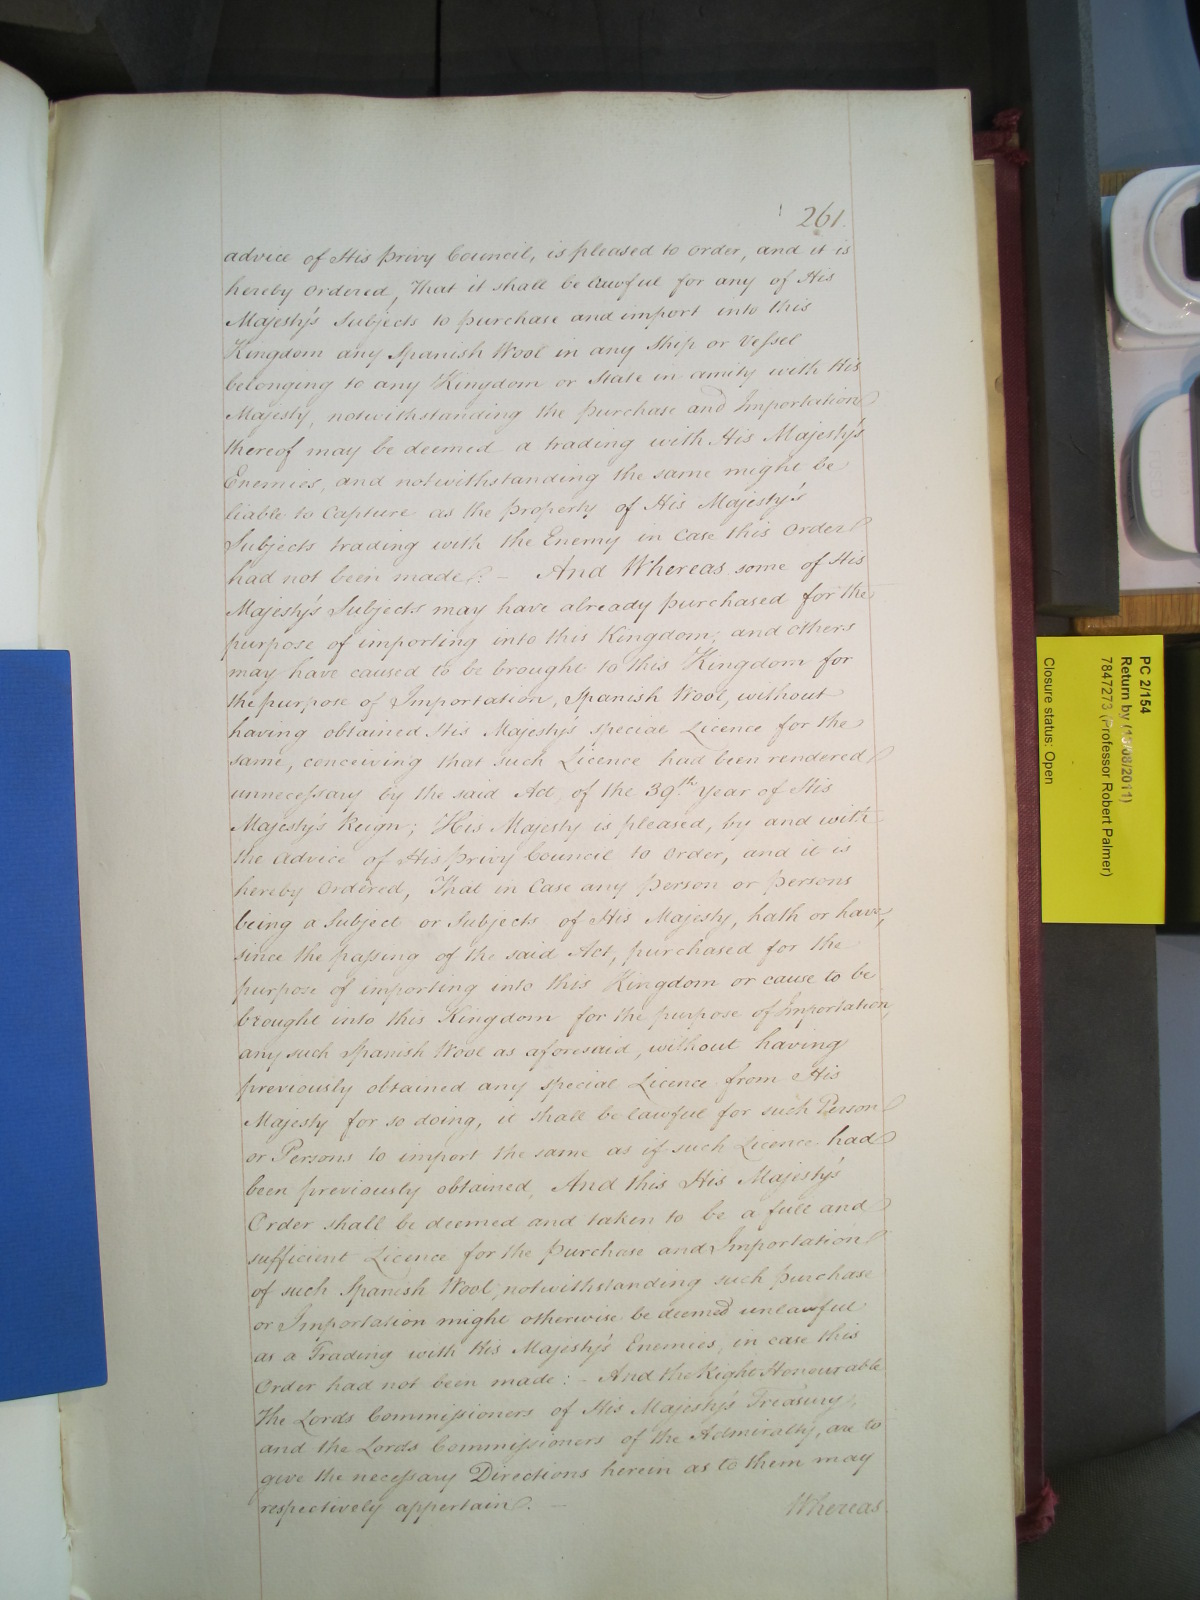 261.
advice of His Privy Council, is pleased to order, and it is
hereby Ordered, That it shall be lawful for any of His
Majesty's Subjects to purchase and import into this
Kingdom any Spanish Wool in any Ship or Vessel
belonging to any Kingdom or State in amity with His
Majesty, notwithstanding the purchase and Importation
thereof may be deemed a trading with His Majesty's
Enemies, and notwithstanding the same might be
liable to Capture as the property of His Majesty's
Subjects trading with the Enemy in Case this Order
had not been made:- And Whereas some of His
Majesty's Subjects may have already purchased for the
purpose of importing into this Kingdom; and others
may have caused to be brought to this Kingdom for
the purpose of Importation, Spanish Wool, without
having obtained His Majesty's special Licence for the
same, conceiving that such Licence had been rendered
unnecessary by the said Act, of the 39.th Year of His
Majesty's Reign; His Majesty is pleased, by and with
the advice of His Privy Council to Order, and it is
hereby Ordered, That in Case any person or persons
being a Subject or Subjects of His Majesty, hath or have,
since the passing of the said Act, purchased for the
purpose of importing into this Kingdom or cause to be
brought into this Kingdom for the purpose of Importation,
any such Spanish Wool as aforesaid, without having
previously obtained any special Licence from His
Majesty for so doing, it shall be lawful for such Person
or Persons to import the same as if such Licence had
been previously obtained, And this His Majesty's
Order shall be deemed and taken to be a full and
sufficient Licence for the Purchase and Importation
of such Spanish Wool, notwithstanding such purchase
or Importation might otherwise be deemed unlawful
as a Trading with His Majesty's Enemies, in case this
Order had not been made:- And the Right Honourable
the Lords Commissioners of His Majesty's Treasury,
and the Lords Commissioners of the Admiralty, are to
give the necessary Directions herein as to them may
respectively appertain. -
Whereas
PC 2/154
Return by (13/08/2011)
7847273 (Professor Robert Palmer)
Closure status: Open